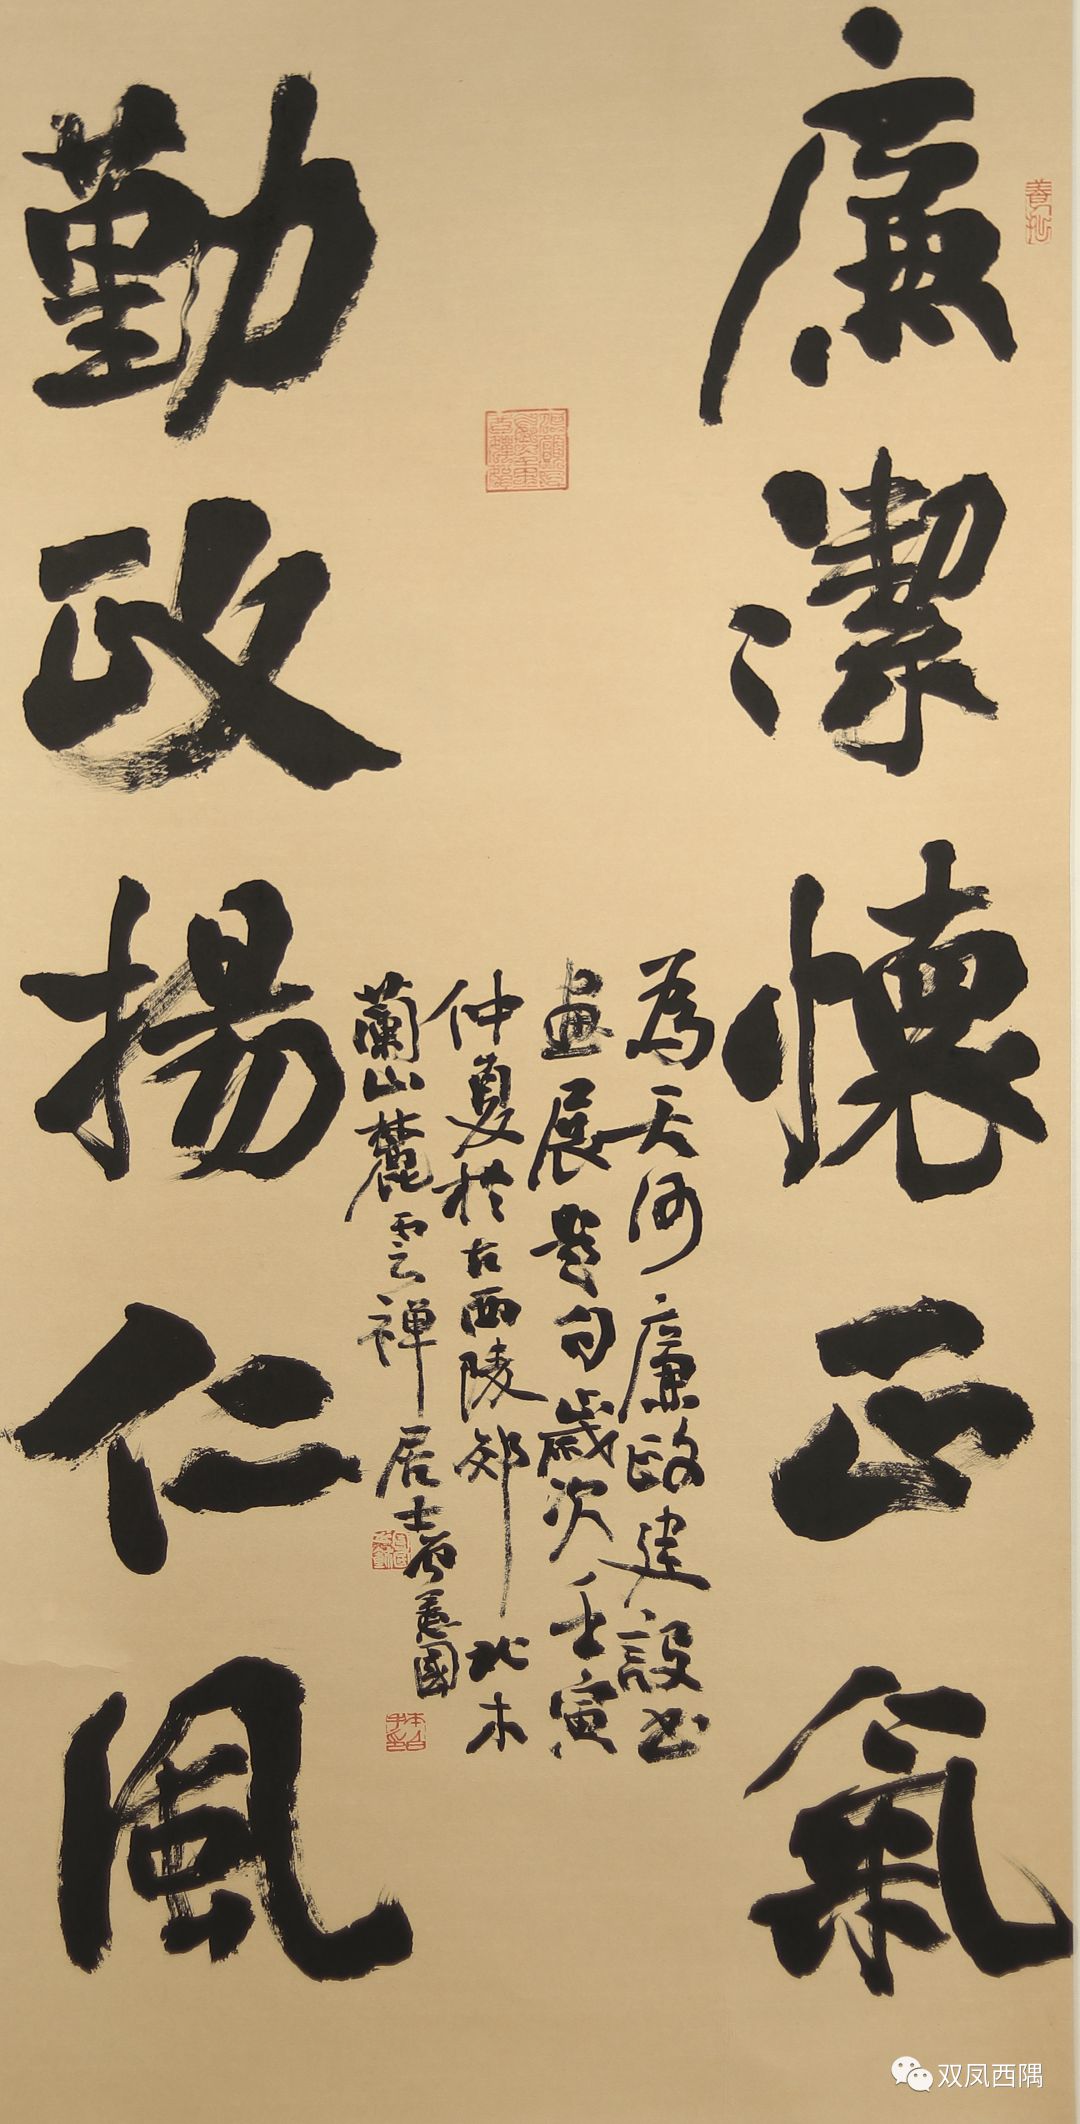 廉潔懷正氣
勤政揚仁風
為天河廉政建設书
畫展題句歲次壬寅
仲夏於古西陵郊北木
蘭山麓雲禅居士
善國
養拙
双凤西隅